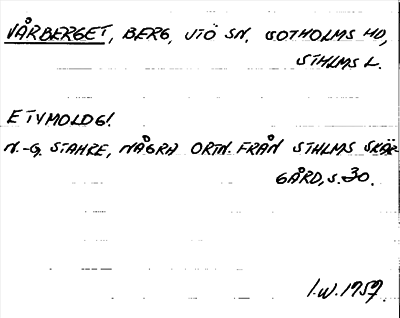 VÅRBERGET, BERG, UTÖ SN, SOTHOLMS HD,
STHLMS L.
ETYMOLOGI.
N.-G. STAHRE, NÅGRA ORTN. FRÅN STHLMS SKÄR-
GÅRD, S. 30.
I.W. 1959.